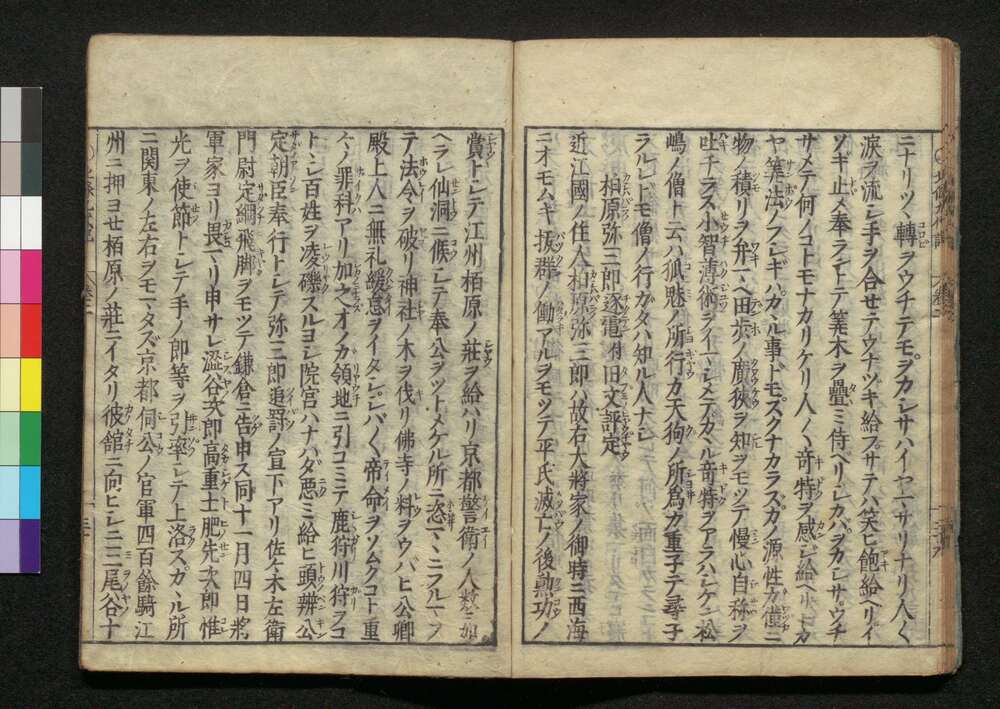 ニナリツヽ轉ヲウチテモヲカシサハイヤマサリナリ人〱
涙ヲ流シ手ヲ合せテウナツキ給フサテハ笑ヒ飽給ヘリイ
ソギ止メ奉ラントテ筭木ヲ疊ミ侍ヘリシカバヲカシサウチ
サメテ何ノコトモナカリケリ人〱竒特ヲ感シ給ヘリトカ
ヤ筭法ノフシギハカヽル事ドモスクナカラスカノ源性ガ僅ニ
物ノ積リヲ弁ヘ田歩ノ廣狹ヲ知ヲモツテ慢心自称ヲ
吐チラス小智薄術ヲイマシメテカヽル竒特ヲアラハシケン松
嶋ノ僧ト云ハ狐魅ノ所行カ天狗ノ所爲カ重子テ尋子
ラルレトモ僧ノ行ガタハ知ル人ナシ
柏原弥三郎逐電付旧文評定
近江國ノ住人柏原弥三郎ハ故右大將家ノ御時ニ西海
ニオモムキ抜群ノ働アルヲモツテ平氏滅亡ノ後勲功ノ
賞トシテ江州柏原ノ莊ヲ給ハリ京都警衛ノ人数ニ加
ヘラレ仙洞ニ候シテ奉公ヲツトメケル所ニ恣マヽニフルマフ
テ法令ヲ破リ神社ノ木ヲ伐リ佛寺ノ料ヲウバヒ公卿
殿上人ニ無礼緩怠ヲイタシシバ〱帝命ヲソムクコト重
〱ノ罪科アリ加之オノカ領地ニ引コミテ鹿狩川狩ヲコ
トトシ百姓ヲ凌礫スルヨシ院宮ハナハダ悪ミ給ヒ頭辨公
定朝臣奉行トシテ弥三郎追罸ノ宣下アリ佐〻木左衛
門尉定綱飛脚ヲモツテ鎌倉ニ告申ス同十一月四日將
軍家ヨリ畏マリ申サレ澁谷次郎高重土肥先次郎惟
光ヲ使節トシテ手ノ郎等ヲ引率シテ上洛スカヽル所
ニ関東ノ左右ヲモマタズ京都伺公ノ官軍四百餘騎江
州ニ押ヨせ柏原ノ莊ニイタリ彼館ニ向ヒシニ三尾谷十